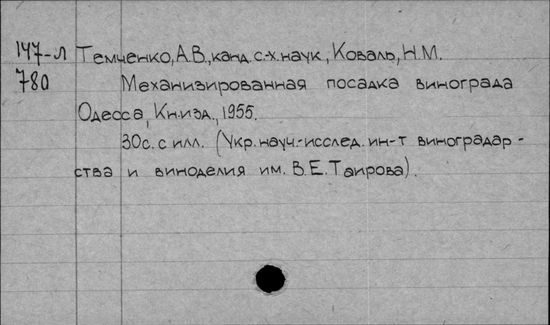 147-л Темченко, А.В., канд. с-х. наук, Коваль, Н.М.
780 Механизированная посадка винограда
Одесса, Кн.изд., 1955.
30с. с илл. (Укр. науч.-исслед. ин-т виноградар-
ства и виноделия им. В.Е. Таирова).